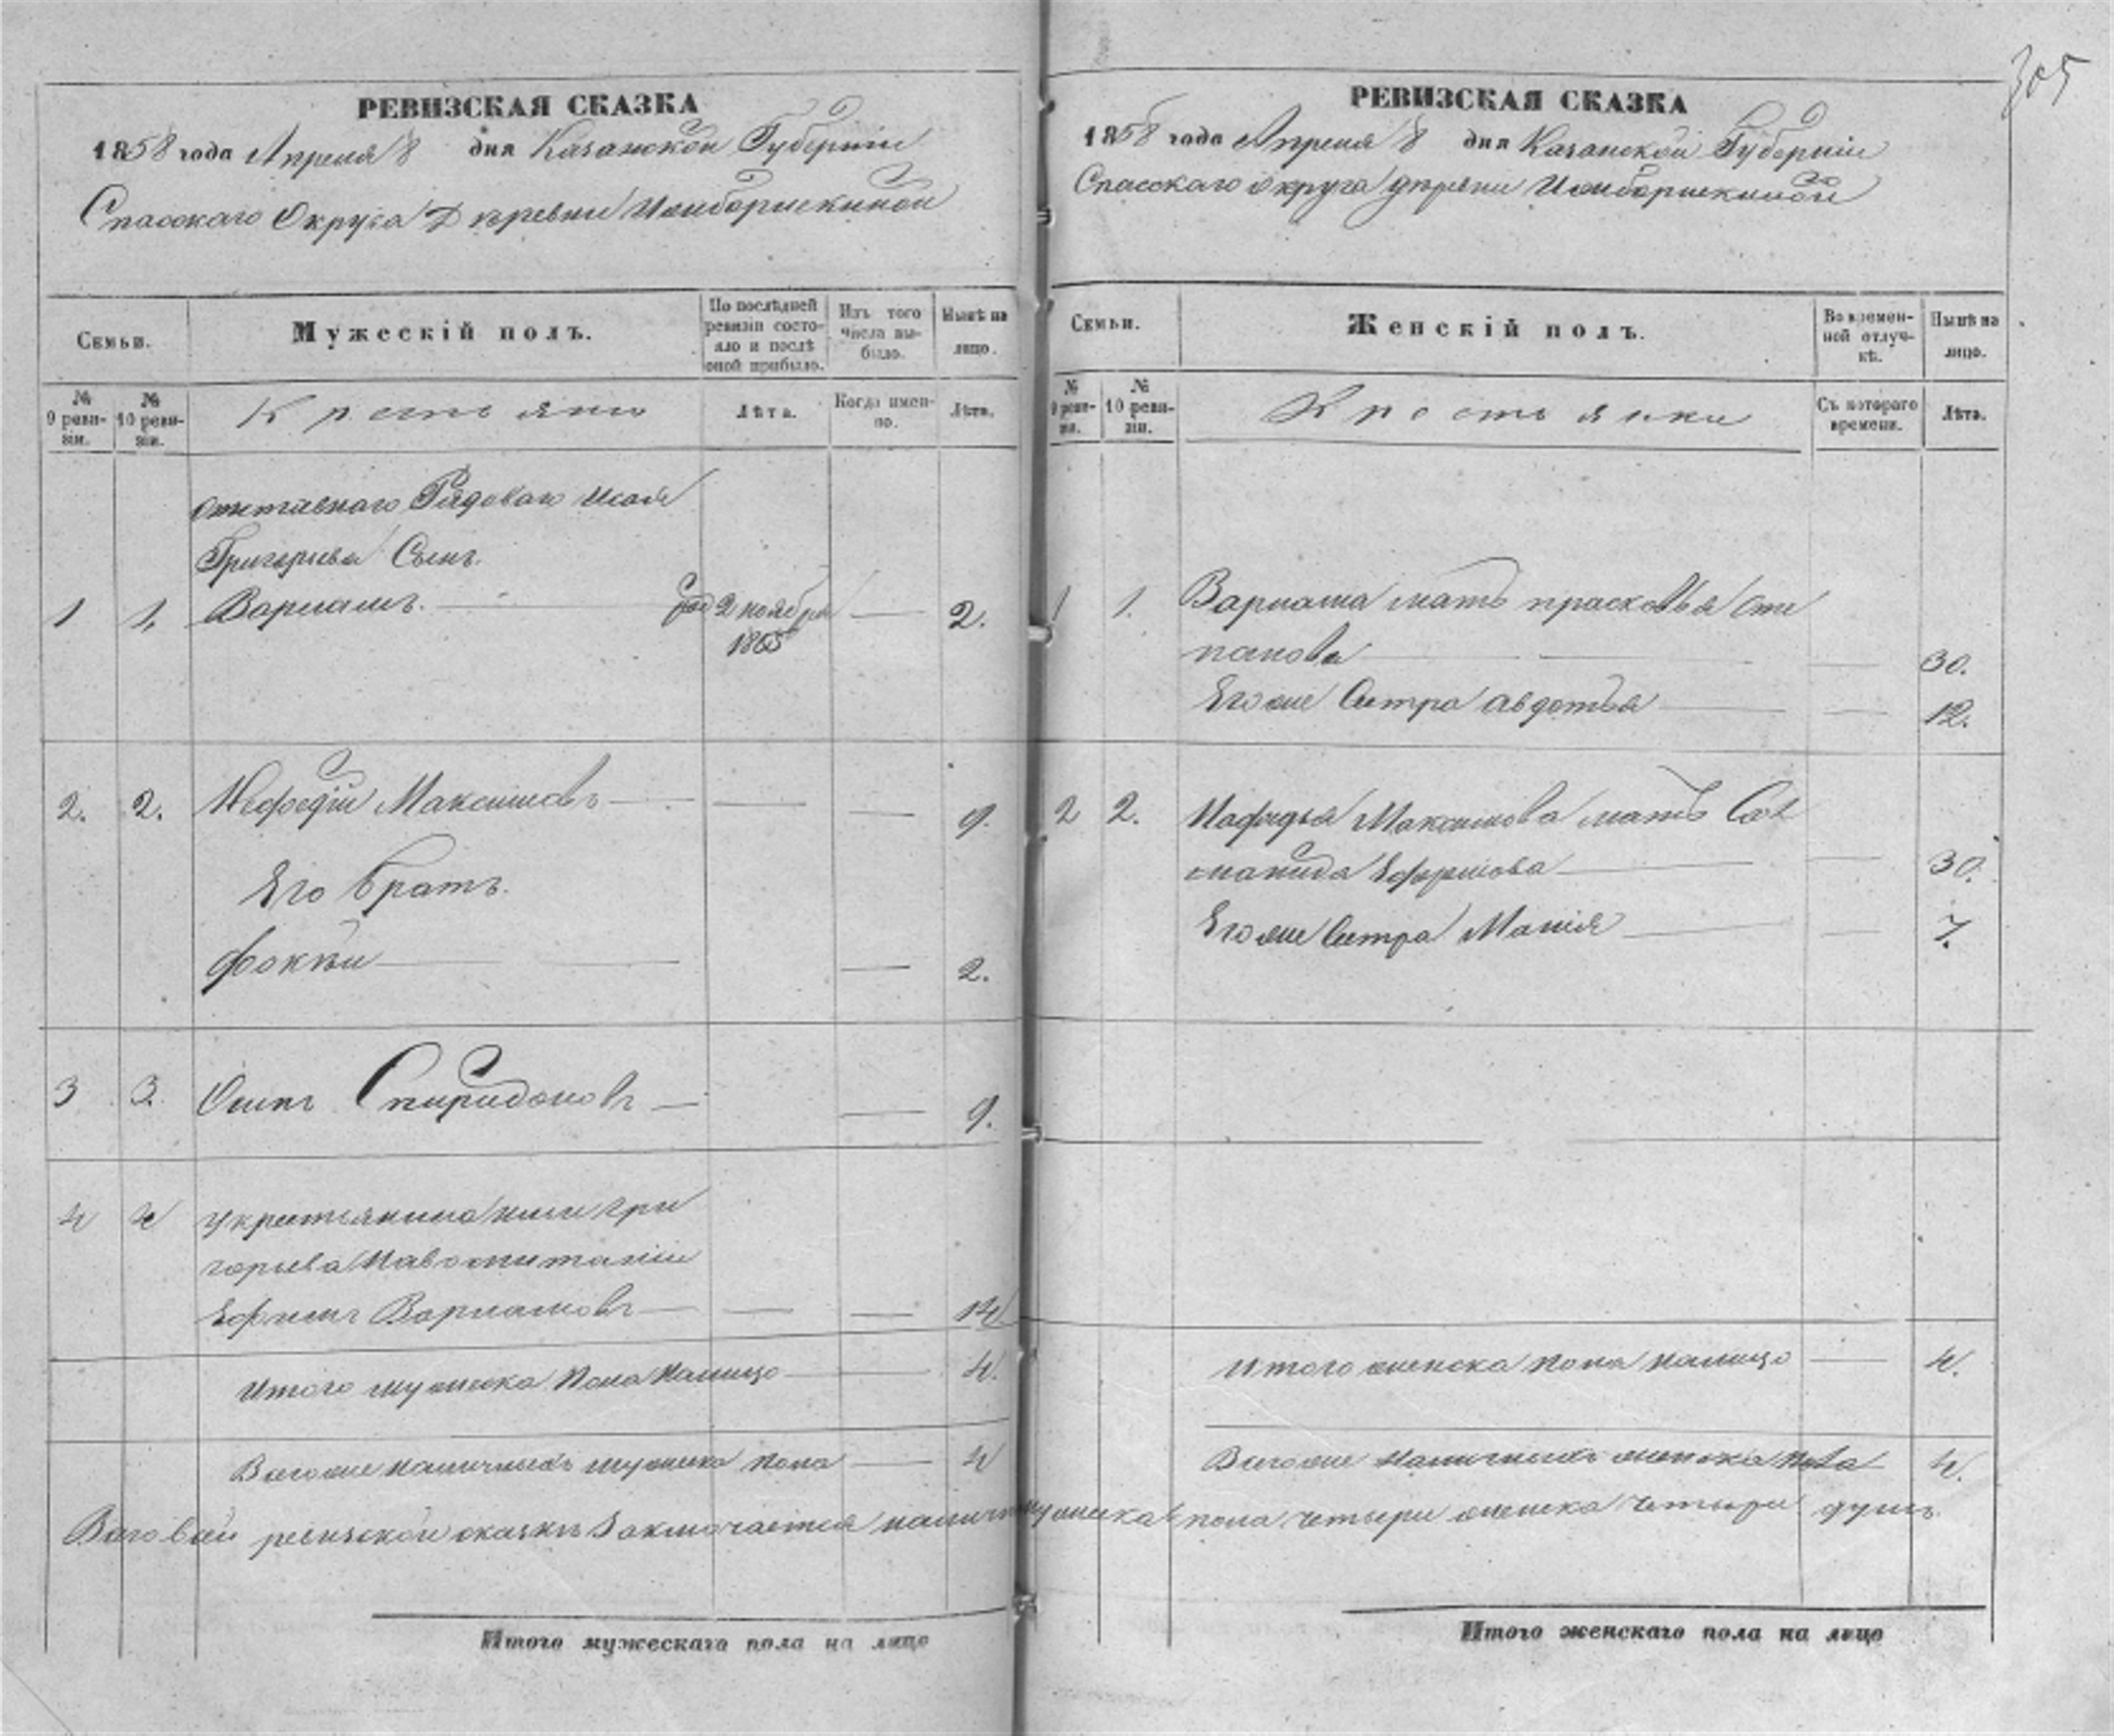 305
РЕВИЗСКАЯ СКАЗКА
1858 года Апреля 8 дня Казанской Губернiи
Спасскаго Округа Деревни
Семьи.
Мужескiй полъ.
По послѣдней ревизiи состояло и послѣ оной прибыло.
Изъ того числа выбыло.
Нынѣ на лицо.
№ 9 ревизiи.
№ 10 ревизiи.
Крестьяне
Лѣта.
Когда именно.
Лѣта.
Отставнаго Рядоваго Исая
Григорьева Сынъ.
1 1. Варламъ. — 2 ноября — 2.
2. 2. Мефодiй Максимовъ — — — 9.
Его братъ.
Фокѣй — — — 2.
3 3. Осипъ Спиридоновъ — — 9.
4 4 у крестьянина гри
горьева Навоспитанiи
Ефимъ Варламовъ — — — 14
Итого мужеска пола налицо — — 4.
Всегоже наличныхъ мужеска пола — 4
РЕВИЗСКАЯ СКАЗКА
1858 года Апреля 8 дня Казанской Губернiи
Спасскаго округа деревни
Семьи.
Женскiй полъ.
Во временной отлучкѣ.
Нынѣ на лицо.
№ 9 ревизiи.
№ 10 ревизiи.
Крестьянки
Съ котораго времени.
Лѣта.
1 1. Варлама мать прасковья сте
панова — — — — 30.
Его же Сестра авдотья — — 12.
2 2. Мафодья Максимова мать Сол
манида Ефремова — — 30.
Его же Сестра Марiя — — 7.
Итого женска пола налицо — 4.
Всегоже Наличныхъ женска пола 4.
Всего всей ревизской сказкѣ Заключается налич мужеска пола четыри женска Четыри душъ.
Итого мужескаго пола на лицо
Итого женскаго пола на лицо